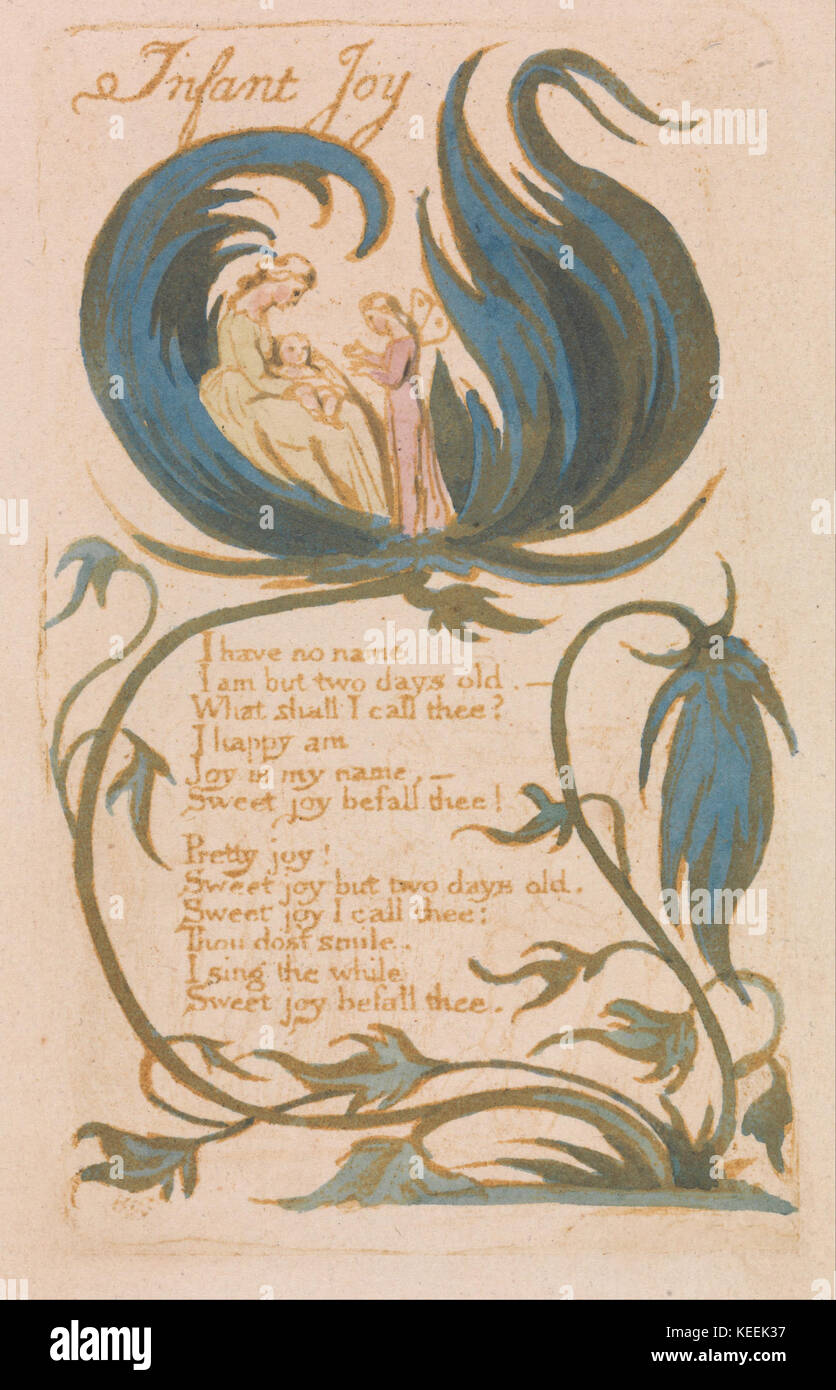 Infant Joy
I have no name
I am but two days old. —
What shall I call thee?
I happy am
Joy is my name. —
Sweet joy befall thee!
Pretty joy!
Sweet joy but two days old.
Sweet joy I call thee:
Thou dost smile.
I sing the while
Sweet joy befall thee.
a
alamy
alamy stock photo
KEEK37
www.alamy.com